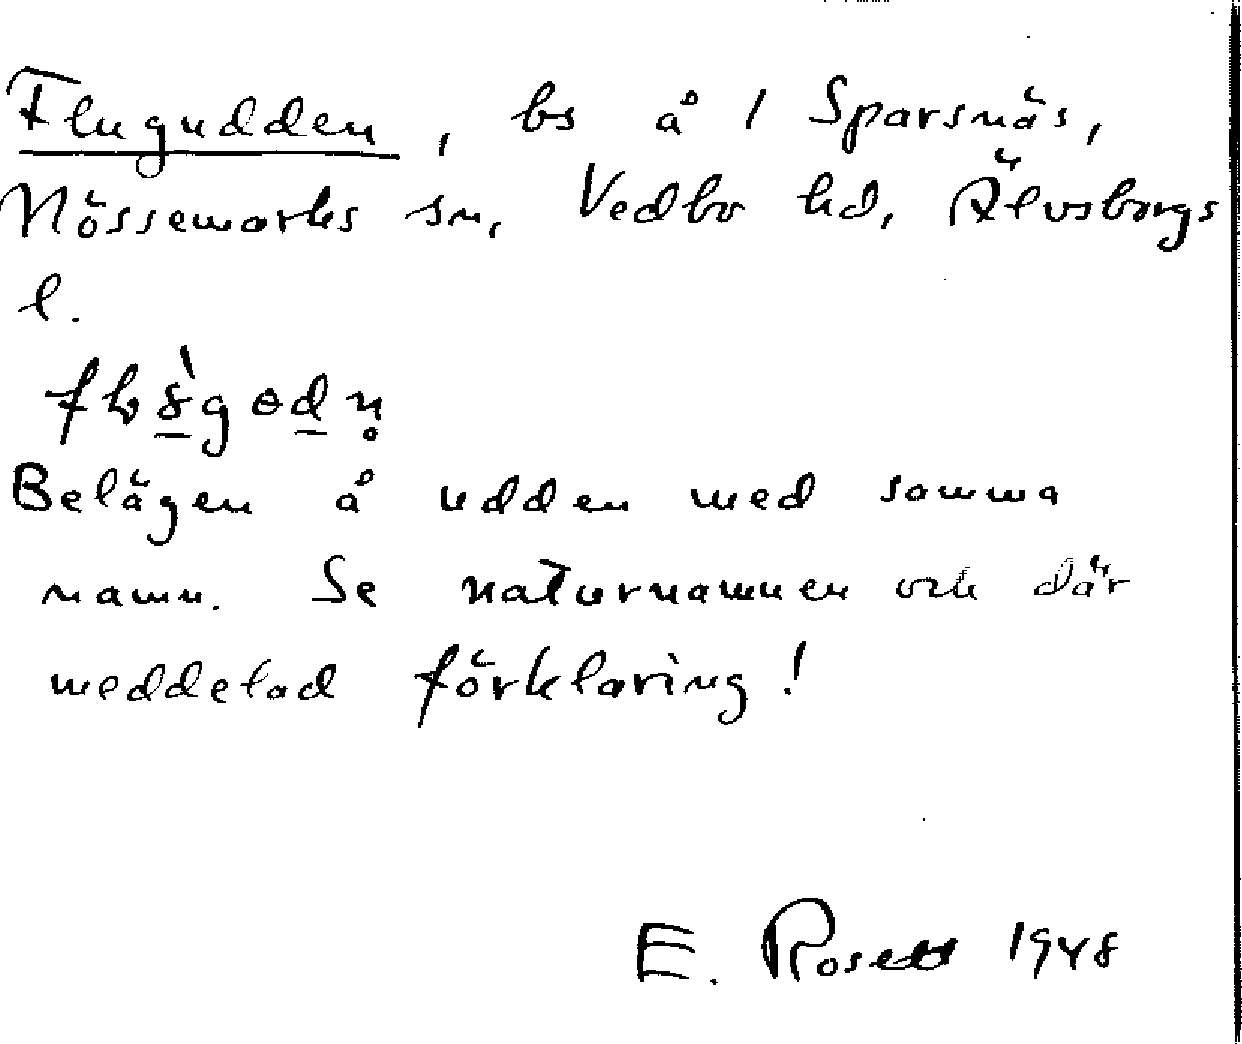 Flugudden, bs å 1 Sparsnäs,
Nössemarks sn, Vedbo hd, Älvsborgs
l.
Belägen å udden med samma
namn. Se naturnamnen och där
meddelad förklaring!
E. Rosell 1948